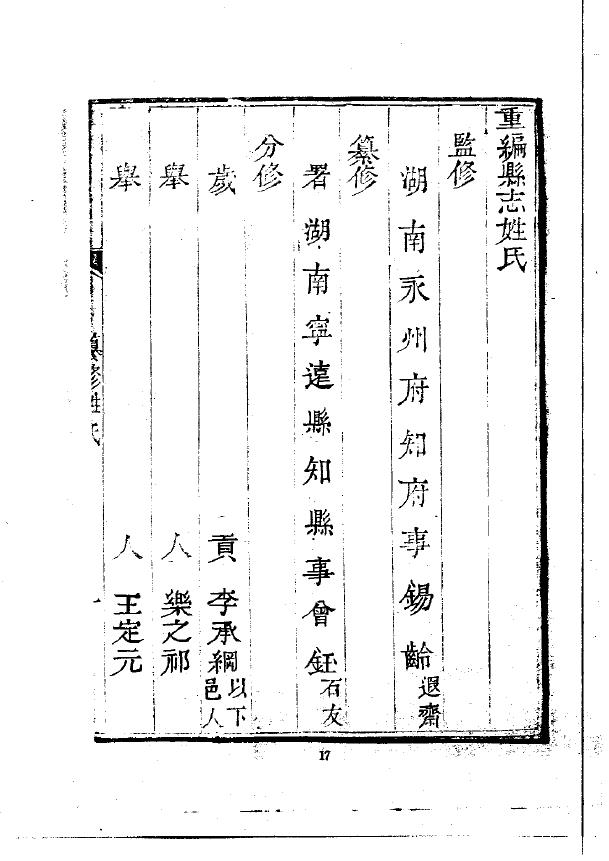 重編縣志姓氏
監修
湖南永州府知府事錫齡退齋
纂修
署湖南寧遠縣知縣事曾鈺石友
分修
歲貢李承綱以下邑人
舉人樂之祁
舉人王定元
纂修姓氏
一
17